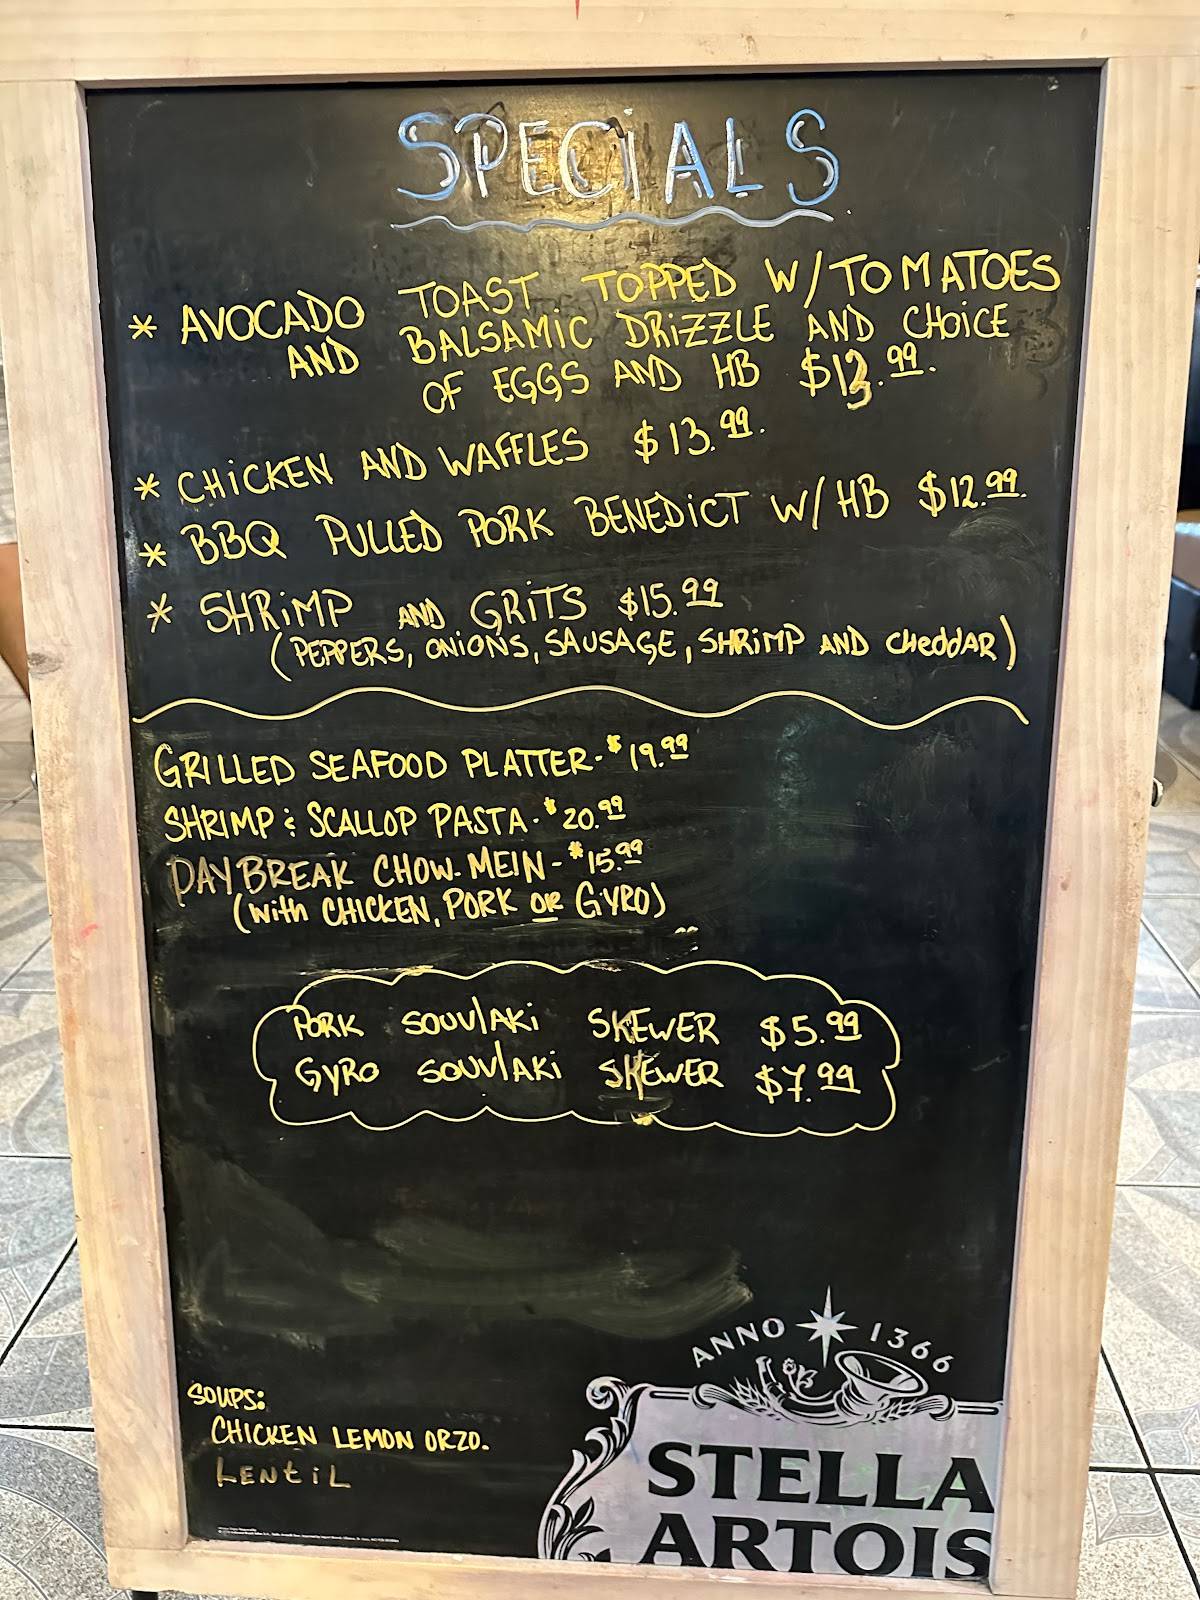 SPECIALS
* AVOCADO TOAST TOPPED W/TOMATOES
AND BALSAMIC DRIZZLE AND CHOICE
OF EGGS AND HB $13.99.
* CHICKEN AND WAFFLES $13.99.
* BBQ PULLED PORK BENEDICT W/ HB $12.99.
* SHRIMP AND GRITS $15.99
(PEPPERS, ONIONS, SAUSAGE, SHRIMP AND CHeddAR)
GRILLED SEAFOOD PLATTER-$19.99
SHRIMP & SCALLOP PASTA-$20.99
DAYBREAK CHOW-MEIN-$15.99
(with CHICKEN, PORK OR GYRO)
PORK SOUVlAKi SKEWER $5.99
GYRO SOUVlAKi SKEWER $7.99
SOUPS:
CHICKEN LEMON ORZO.
LENtiL
ANNO 1366
STELLA
ARTOIS